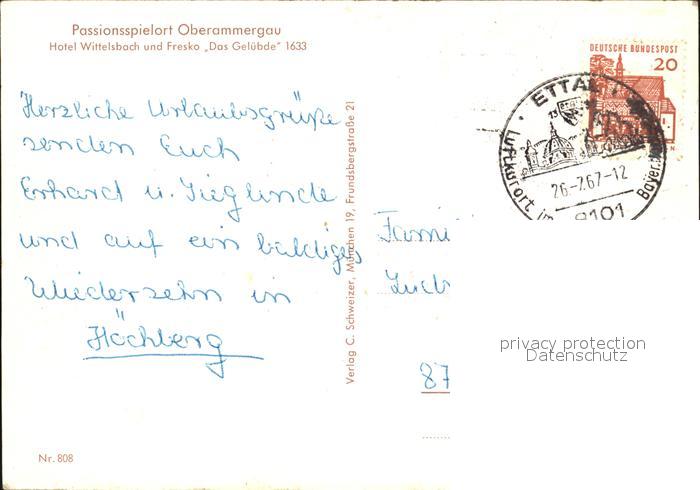 Passionsspielort Oberammergau
Hotel Wittelsbach und Fresko „Das Gelübde" 1633
Herzliche Urlaubsgrüße
senden Euch
Erhard u. Sieglinde
und auf ein baldiges
Wiedersehn in
Höchberg
Nr. 808
Verlag C. Schweizer, München 19, Frundsbergstraße 21
DEUTSCHE BUNDESPOST
20
ETTAL
Luftkurort im
26.-7.67-12
8101
Bayer.
Fami
87
privacy protection
Datenschutz